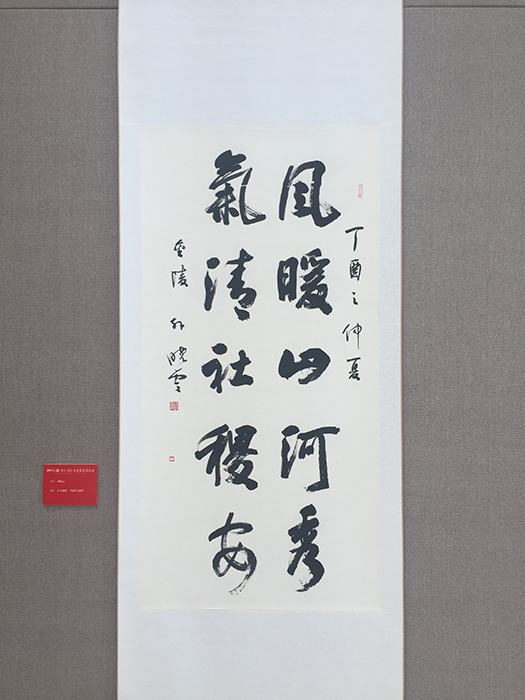 丁酉之仲夏
風暖山河秀
氣清社稷安
金陵孙晓雲